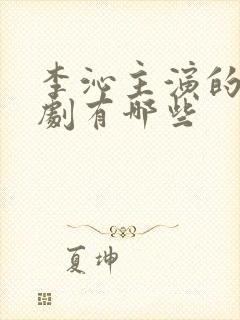 李沁主演的
劇有哪些
夏坤